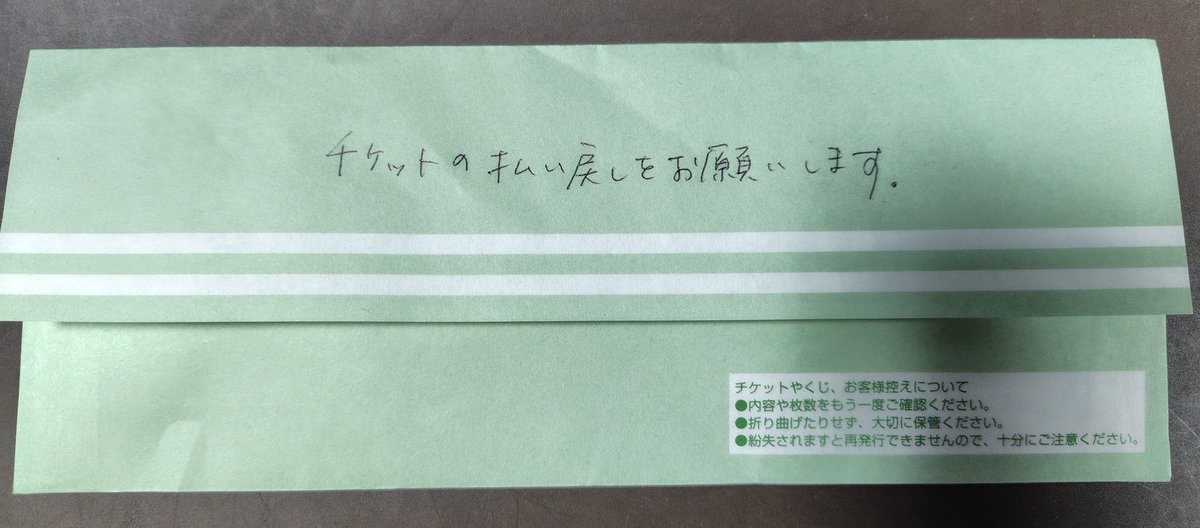 チケットの払い戻しをお願いします.
チケットやくじ、お客様控えについて
●内容や枚数をもう一度ご確認ください。
●折り曲げたりせず、大切に保管ください。
●紛失されますと再発行できませんので、十分にご注意ください。